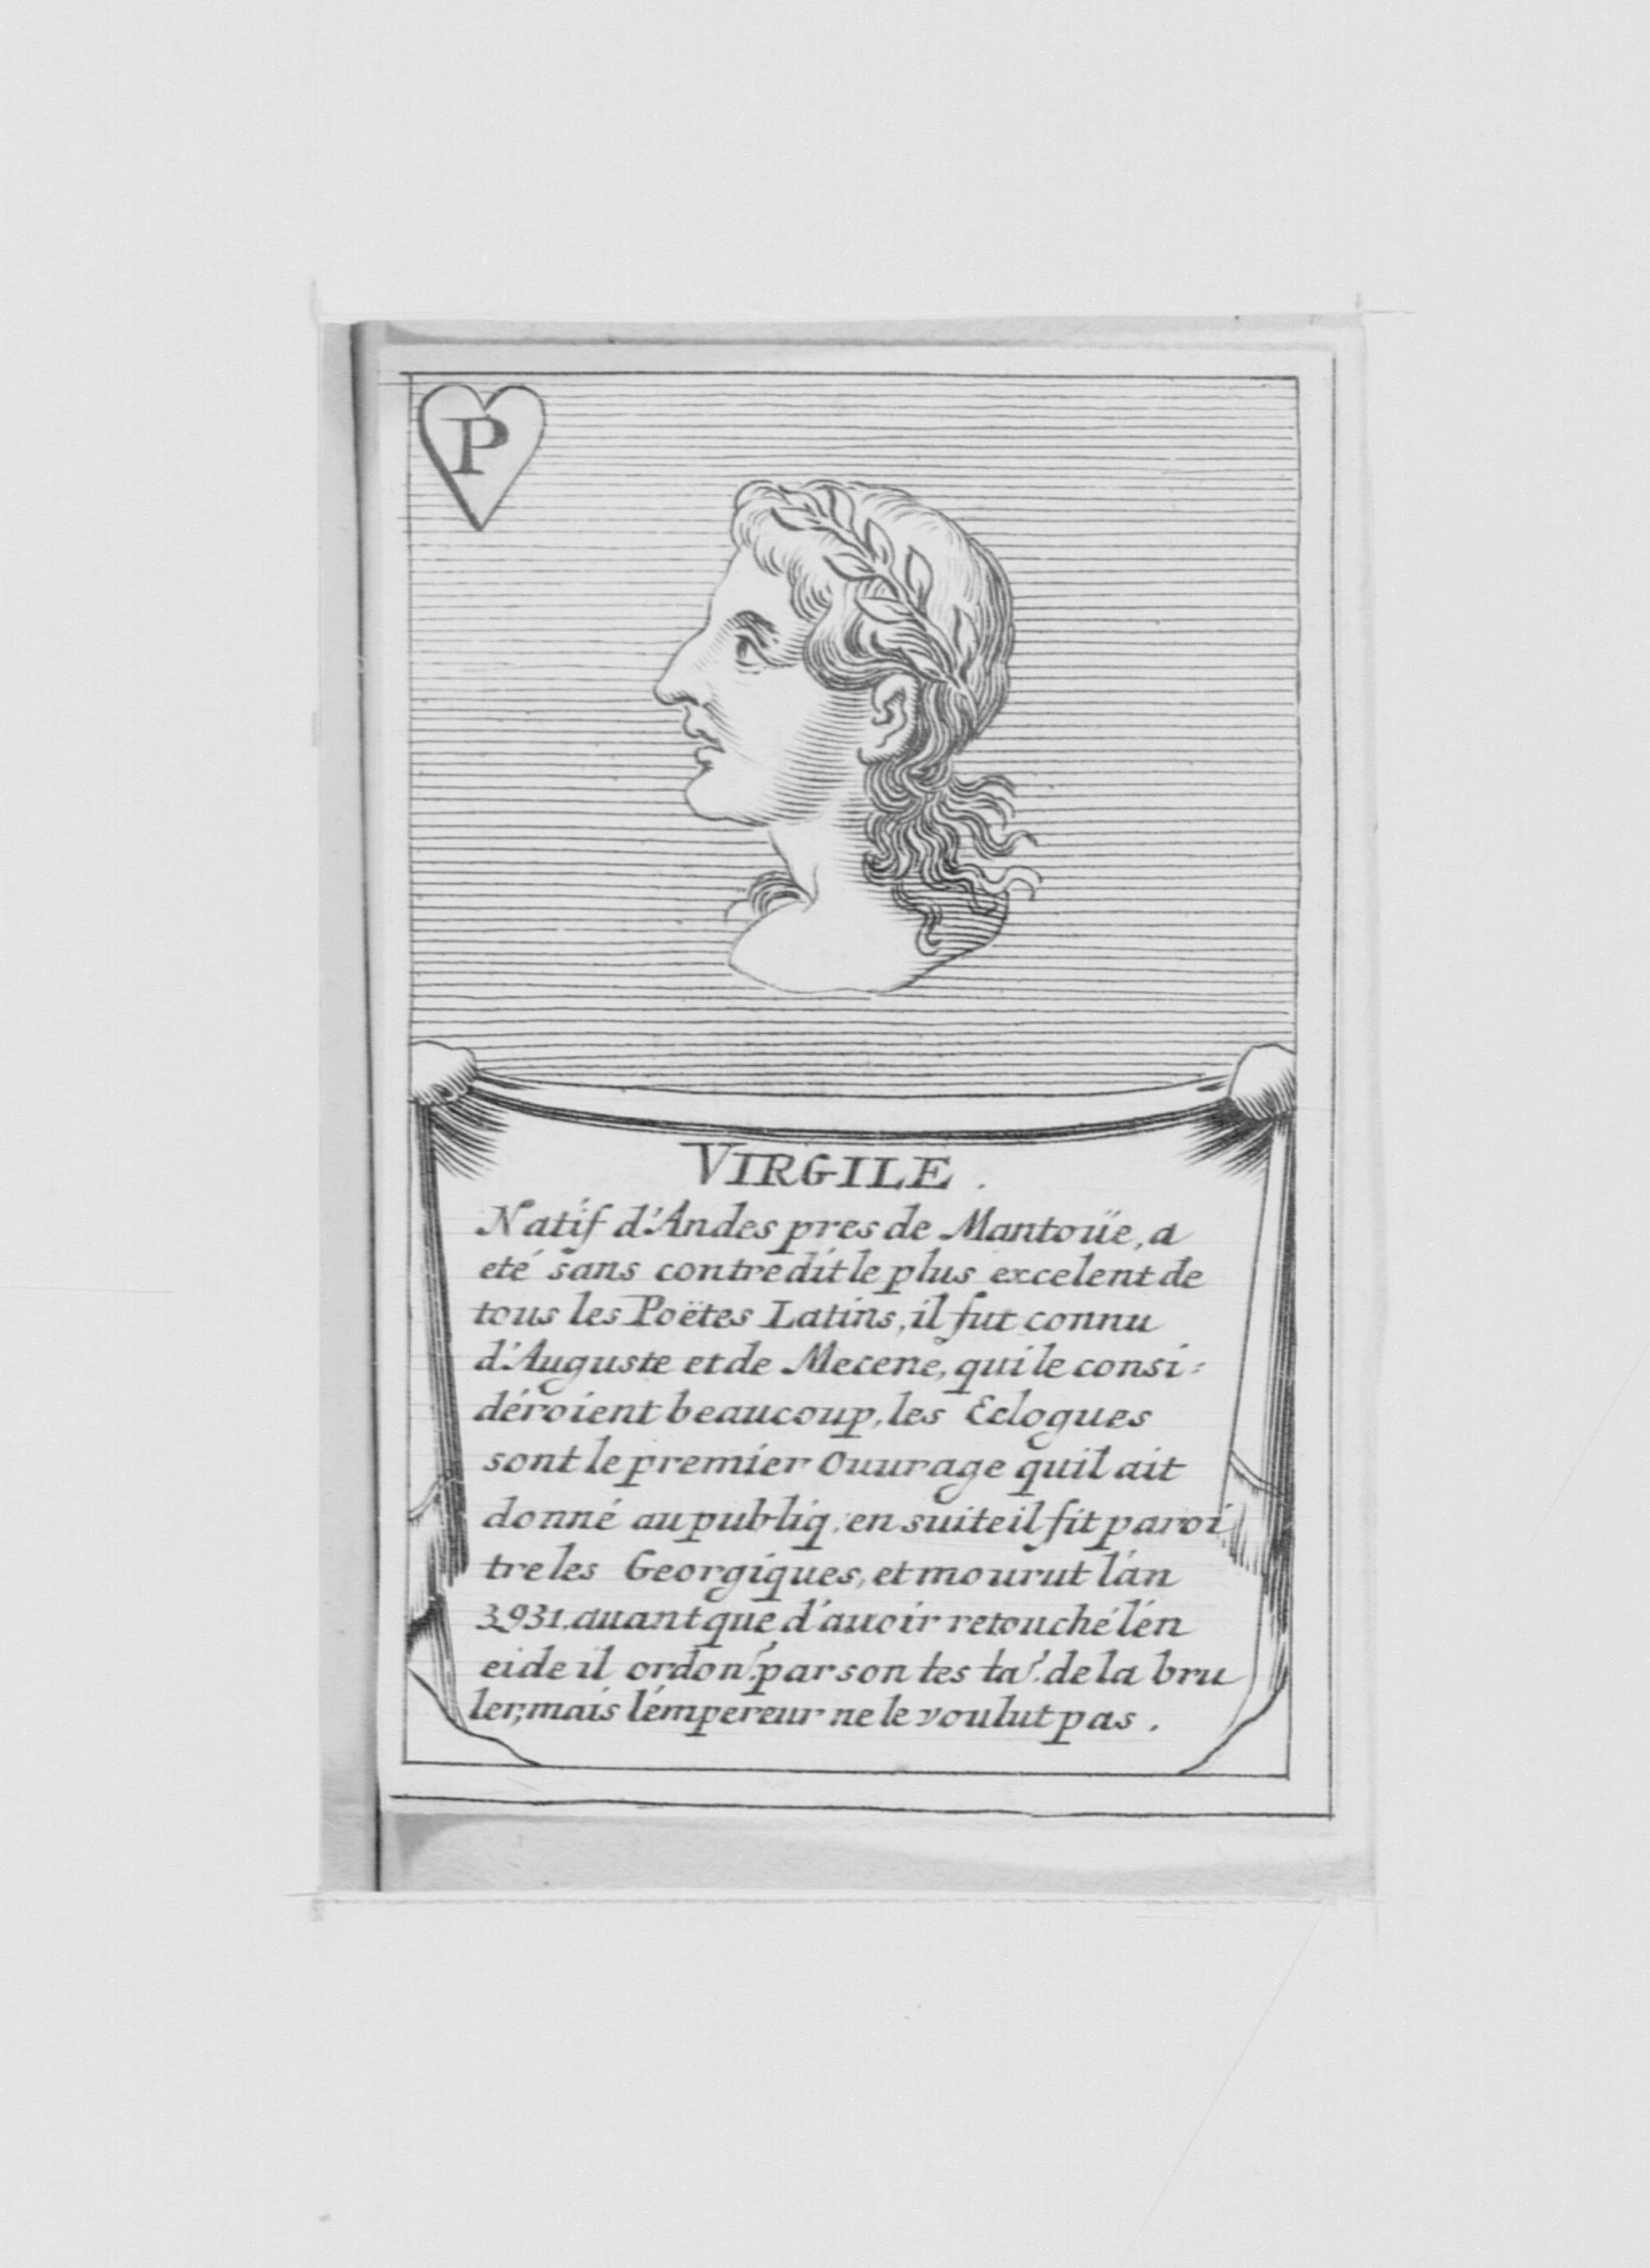 P
VIRGILE.
Natif d'Andes pres de Mantoüe, a
eté sans contredit le plus excelent de
tous les Poëtes Latins, il fut connu
d'Auguste et de Mecene, qui le consi=
déroient beaucoup, les Eclogues
sont le premier Ouurage quil ait
donné au publiq, en suite il fit paroi
tre les Georgiques, et mourut lán
3931. auant que d'auoir retouché lén
eide il ordon.t par son tes ta.t de la bru
ler, mais lémpereur ne le voulut pas.